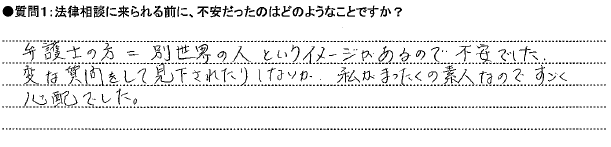 ●質問1:法律相談に来られる前に、不安だったのはどのようなことですか？
弁護士の方=別世界の人というイメージがあるので不安でした。
変な質問をして見下されたりしないか、私がまったくの素人なのですごく
心配でした。